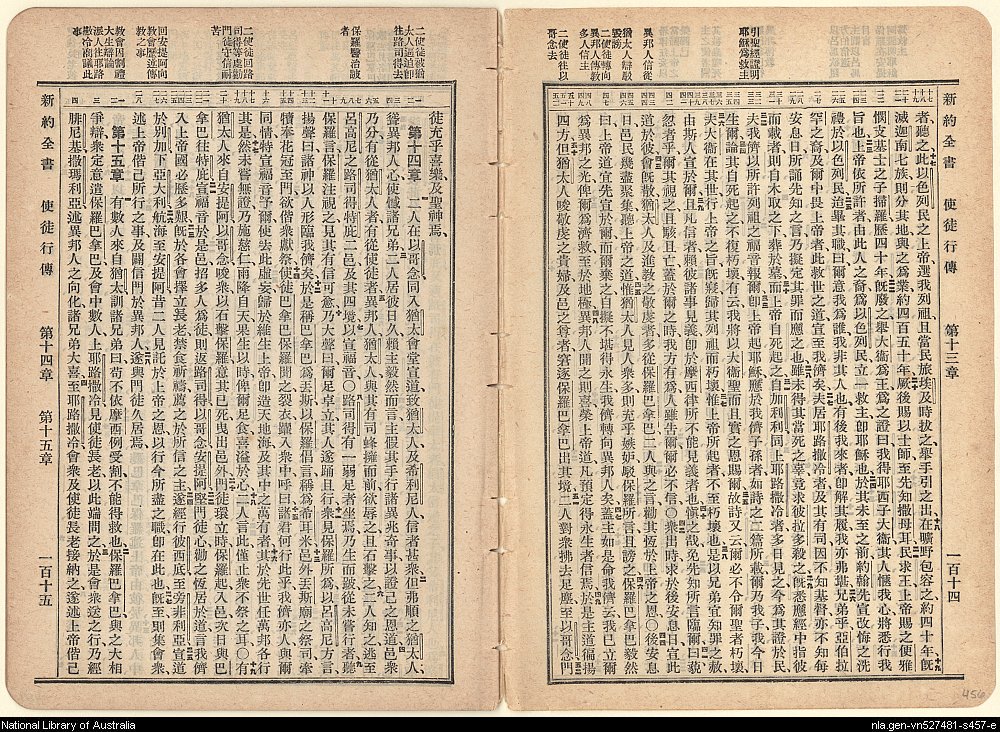 新約全書 使徒行傳 第十三章 一百十四
引聖經證明耶穌爲救主
異邦人信從
猶太人辯駁毀謗
二使徒轉向異邦人傳敎多人信主
二使徒往以哥念去
者聽之此以色列民之上帝選我列祖且當民旅埃及時拔之舉手引之出在曠野包容之約四十年旣
滅迦南七族則分其地與之爲業約四百五十年厥後賜以士師至先知撒母耳民求王上帝賜之便雅
憫支基士之子掃羅歷四十年旣廢之舉大衞爲王爲之證曰我得耶西子大衞其人愜我心將悉行我
旨也上帝依所許由此人之裔爲以色列民立一救主卽耶穌也於其未至之前約翰先宣改悔之洗
禮於以色列民造畢其職曰爾意我爲誰我非其人也有後我來者卽解其履我亦弗堪兄弟乎亞伯拉
罕之裔及爾中畏上帝者此救世之道宣至我儕矣夫居耶路撒冷者及其有司因不知基督亦不知每
安息日所誦先知之言乃擬定其罪而應之也雖未得其當死之辜竟求彼拉多殺之旣悉應經中指彼
而載者則自木取之下葬於墓而上帝自死起之自加利利同上耶路撒冷者多日見之今爲其證於民
夫我儕以所許列祖之福音報爾卽上帝起耶穌應於我儕子孫者如詩之二篇所載爾乃我子我今日
生爾論其自死起之不復朽壞有云我將以大衞聖而且實之恩賜爾故詩又云爾必不令爾聖者朽壞
夫大衞在其世行上帝之旨旣寢歸其列祖而朽壞惟上帝所起者不至朽壞也是以兄弟宜知罪之赦
由斯人宣於爾且凡信者賴彼諸事見義卽於摩西律所不能見義者也愼之哉免先知所言臨爾曰藐
忽者乎爾其視之且駭且亡蓋於爾之時我方有爲人雖告爾爾必不信◯衆出時求於後安息日宣此
道於彼會旣散猶太人及進敎之敬虔者多從保羅巴拿巴二人與之言勸其恆於上帝之恩◯後安息
日邑民幾盡聚集聽上帝之道惟猶太人見人衆多則充乎嫉妒駁保羅所言且謗之保羅巴拿巴毅然
曰上帝道宜先宣於爾而爾棄之自擬不堪得永生我儕轉向異邦人矣蓋主如是命我儕云我已立爾
爲異邦人之光俾爾爲救至於地極異邦人聞之則喜榮上帝道凡預定得永生者信焉於是主道徧揚
四方但猶太人唆敬虔之貴婦及邑之尊者窘逐保羅巴拿巴出其境二人對衆拂去足塵至以哥念門
二使徒被猶太人逼迫卽往路司得去
保羅醫治跛者
二使徒回路司得等處勸門徒守信耐苦
回安提阿向敎會歷述傳敎之事
敎會因割禮大生辯論派人往耶路撒冷議此事
徒充乎喜樂及聖神焉
第十四章 二人在以哥念同入猶太會堂宣道致猶太人及希利尼人信者甚衆但弗順之猶太人
聳異邦人心使憾諸兄弟二人居彼日久賴主毅然而言主假其手行諸異兆奇事以證己之恩道邑衆
乃分有從猶太人者有從使徒者異邦人猶太人與其有司蜂擁而前欲辱之且石擊之二人知之逃至
呂高尼之路司得特庇二邑及其四境以宣福音◯路司得有一弱足者坐焉乃生而跛從未嘗行者聽
保羅言保羅注視之見其有信可愈乃大聲曰爾足卓立其人遂踊且行衆見保羅所爲以呂高尼方言
揚聲曰諸神以人形臨我儕矣於是稱巴拿巴爲丟斯以保羅倡言稱爲希耳米邑外丟斯廟之祭司牽
犢奉花冠至門欲偕衆獻祭使徒巴拿巴保羅聞之裂衣躍入衆中呼曰諸君何行此乎我儕亦人與爾
同情特宣福音予爾使去此虛妄歸於維生上帝卽造天地海及其中之萬有者其於先世任萬邦各行
其是然未嘗無證乃施慈仁雨降自天果生以時俾爾足食喜溢於心二人言此僅止衆不祭之耳◯有
猶太人來自安提阿與以哥念唆衆以石擊保羅意其已死曳出邑外門徒環立時保羅起入邑次日與巴
拿巴往特庇宣福音於是邑招多人爲徒則返路司得以哥念安提阿堅門徒心勸之恆居於道言我儕
入上帝國必歷多艱旣於各會擇立長老禁食祈禱薦之於所信之主遂經行彼西底至旁非利亞宣道
於別加下亞大利航海至安提阿昔二人見託於上帝之恩以行今所盡之職卽在此也旣至則集會衆
述上帝偕己所行之事及闢信門於異邦人遂與門徒久居焉
第十五章 有數人來自猶太訓諸兄弟曰苟不依摩西例受割不能得救也保羅巴拿巴與之大相
爭辯衆定意遣保羅巴拿巴及會中數人上耶路撒冷見使徒長老以此端問之於是會衆送之行乃經
腓尼基撒瑪利亞述異邦人之向化諸兄弟大喜至耶路撒冷會衆及使徒長老接納之遂述上帝偕己
新約全書 使徒行傳 第十四章 第十五章 一百十五
456
National Library of Australia
nla.gen-vn527481-s457-e